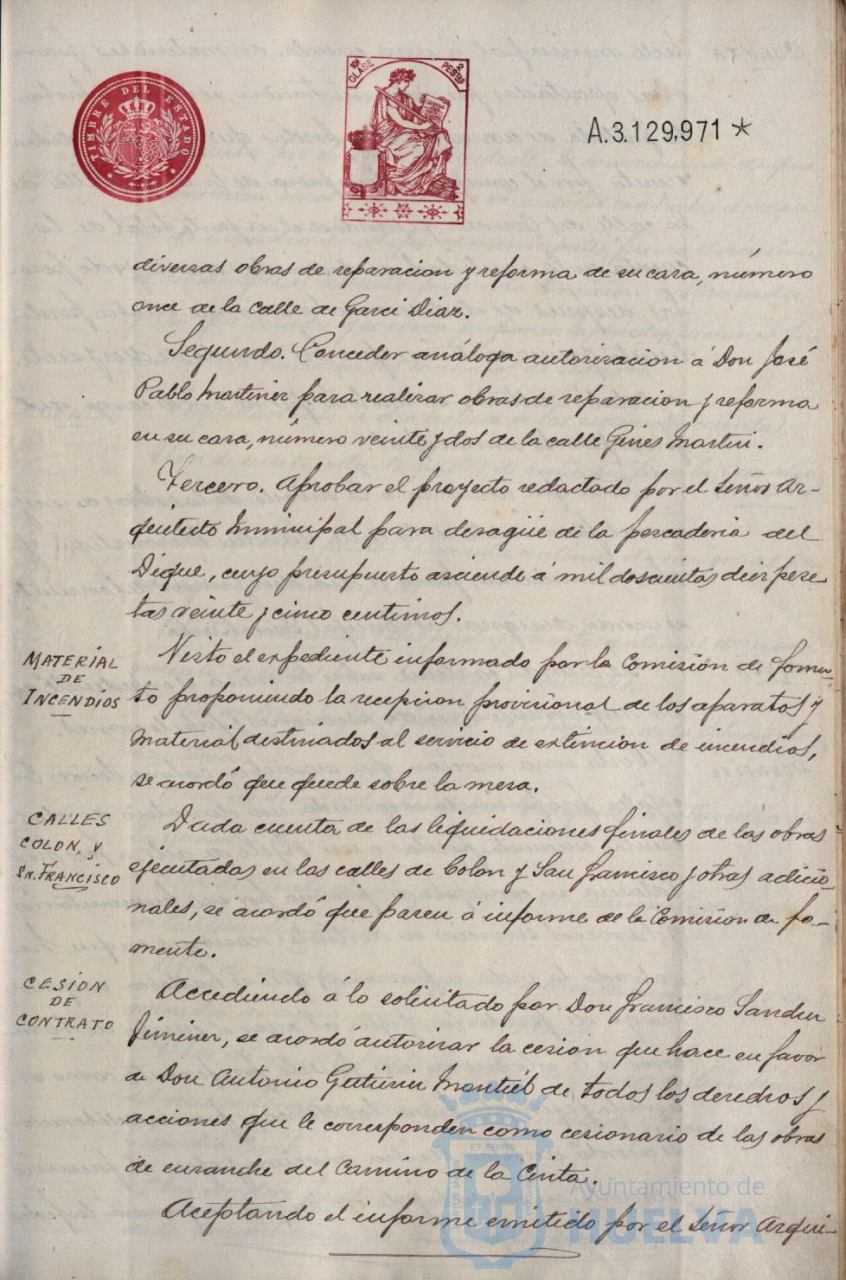 TIMBRE DEL ESTADO
10ª CLASE
2 PESTAS
A.3.129,971 *
diversas obras de reparacion y reforma de su casa, número
once de la calle de Garci Diaz.
Segundo. Conceder análoga autorizacion á Don José
Pablo Martinez para realizar obras de reparacion y reforma
en su casa, número veinte y dos de la calle Gines Martin.
Tercero. Aprobar el proyecto redactado por el Señor Ar-
quitecto Municipal para desagüe de la pescaderia del
Dique, cuyo presupuesto asciende á mil doscientas diez pese-
tas veinte y cinco centimos.
MATERIAL
DE
INCENDIOS
Visto el expediente informado por la Comisión de Fomen-
to proponiendo la recepcion provisional de los aparatos y
material destinados al servicio de extincion de incendios,
se acordó que quede sobre la mesa.
CALLES
COLON, y
Sn. FRANCISCO
Dada cuenta de las liquidaciones finales de las obras
ejecutadas en las calles de Colon y San Francisco y otras adicio-
nales, se acordó que pasen á informe de la Comision de Fo-
mento.
CESIÓN
DE
CONTRATO
Accediendo á lo solicitado por Don Francisco Sanchez
Jimenez, se acordó autorizar la cesion que hace en favor
de Don Antonio Gutierrez Montiel de todos los derechos y
acciones que le corresponden como cesionario de las obras
de ensanche del Camino de la Cinta.
Aceptando el informe emitido por el Señor Arqui-
Ayuntamiento de
HUELVA